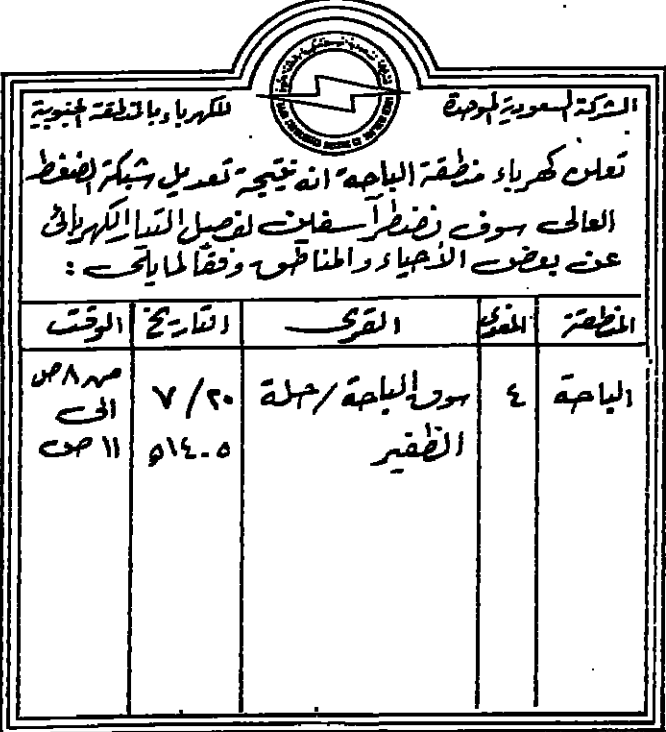 الشركة السعودية الموحدة للكهرباء بالمنطقة الجنوبية
تعلن كهرباء منطقة الباحة انه نتيجة تعديل شبكة الضغط
العالى سوف نضطر آسفين لفصل التيار الكهربائى
عن بعض الأحياء والمناطق وفقاً لما يلى :
المنطقة المغذى القرى التاريخ الوقت
الباحة ٤ سوق الباحة / حلة ٢٠ / ٧ من ٨ ص
الظفير ١٤٠٥ه الى
١١ ص